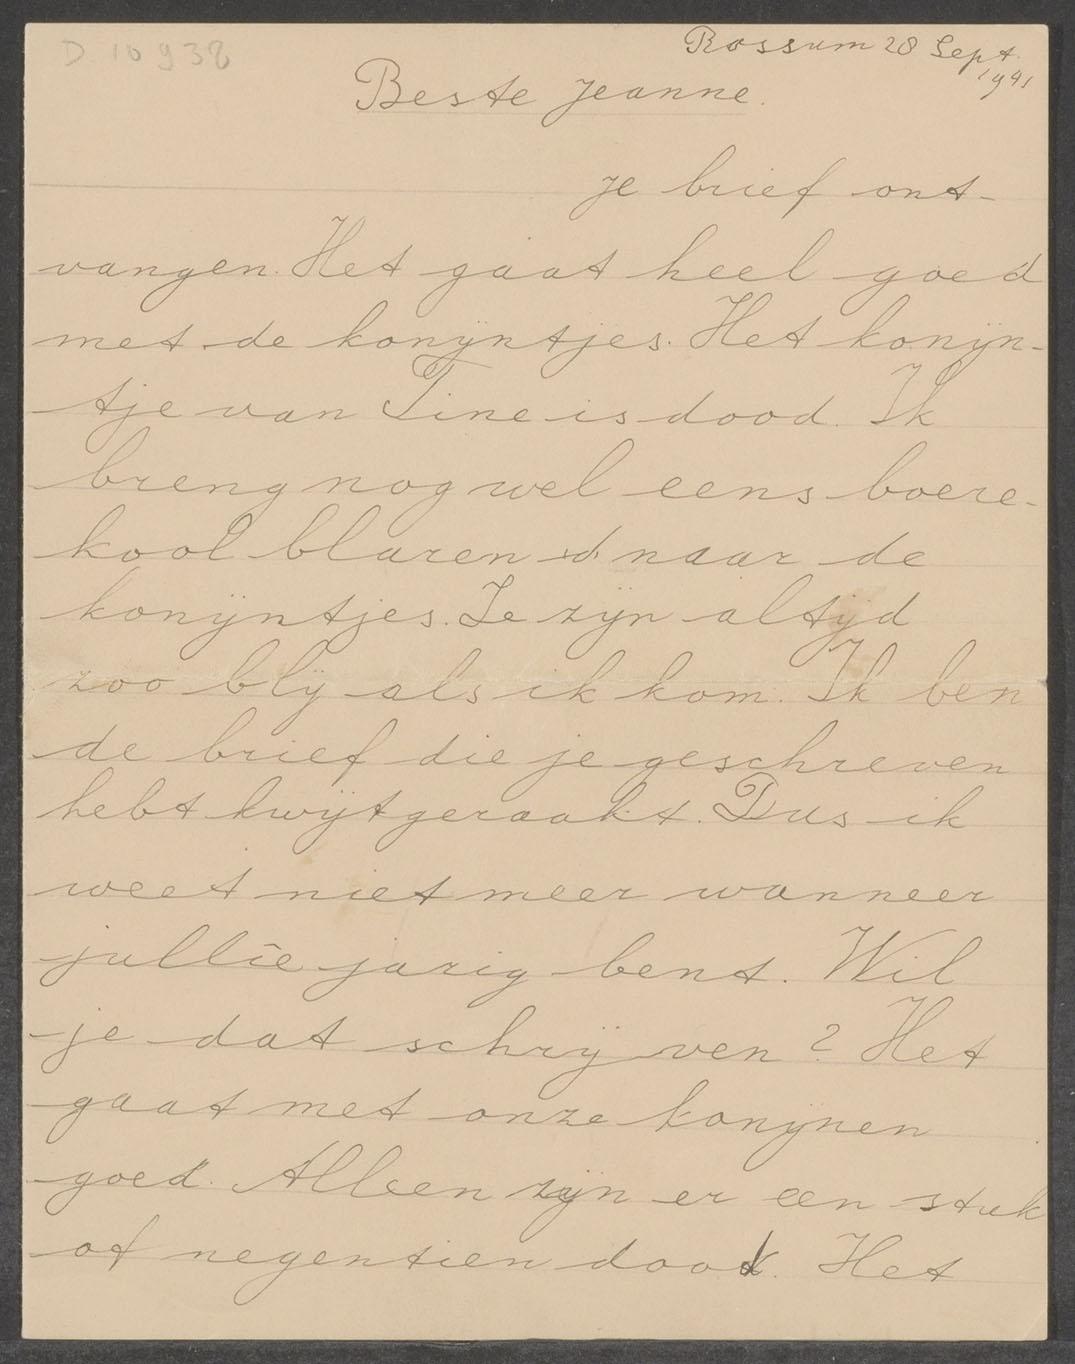 D 10938
Rossum 28 Sept.
1941
Beste Jeanne.
je brief ont-
vangen. Het gaat heel goed
met de konijntjes. Het konijn-
tje van Tine is dood. Ik
breng nog wel eens boere-
kool blaren d naar de
konijntjes. Ze zijn altijd
zoo blij als ik kom. Ik ben
de brief die je geschreven
hebt kwijtgeraakt. Dus ik
weet niet meer wanneer
jullie jarig bent. Wil
je dat schrijven? Het
gaat met onze konijnen
goed. Alleen zijn er een stuk
of negentien dood. Het